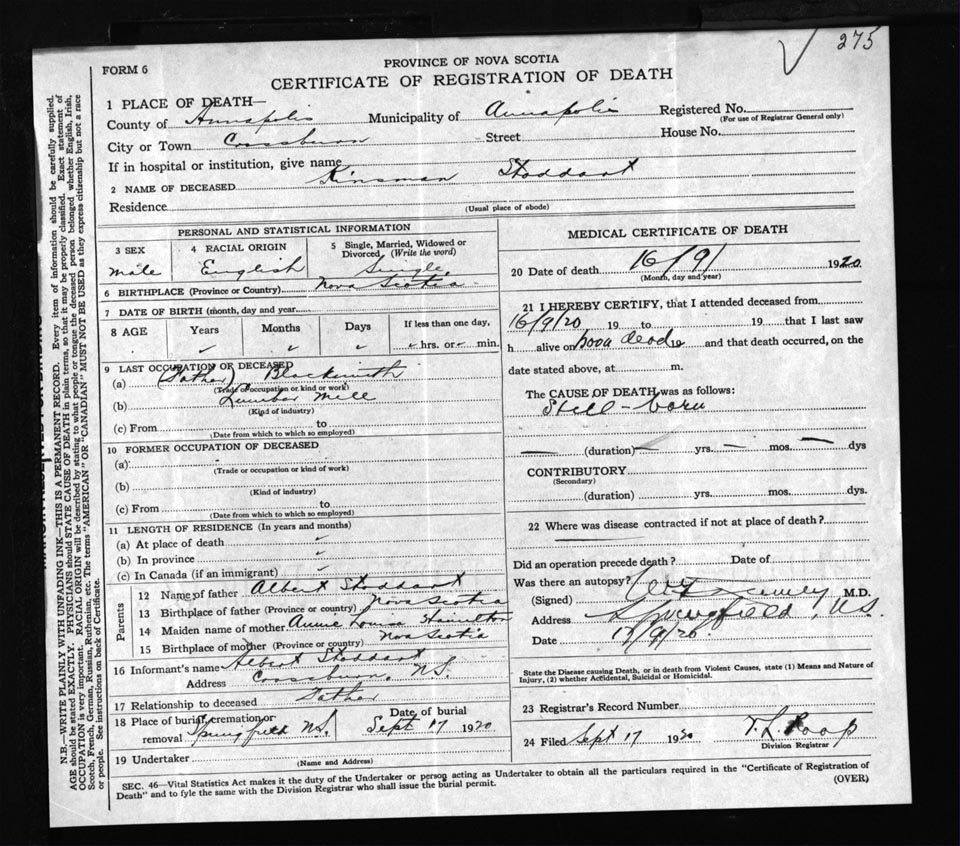 275
FORM 6
PROVINCE OF NOVA SCOTIA
CERTIFICATE OF REGISTRATION OF DEATH
1 PLACE OF DEATH—
County of Annapolis Municipality of Annapolis Registered No.
(For use of Registrar General only)
City or Town Crossburn Street House No.
If in hospital or institution, give name
2 NAME OF DECEASED Kinsman Stoddart
Residence
(Usual place of abode)
PERSONAL AND STATISTICAL INFORMATION
3 SEX 4 RACIAL ORIGIN 5 Single, Married, Widowed or Divorced, (Write the word)
male English Single
6 BIRTHPLACE (Province or Country) Nova Scotia
7 DATE OF BIRTH (month, day and year)
8 AGE Years Months Days If less than one day,
hrs. or min.
9 LAST OCCUPATION OF DECEASED
(a) (Father) Blacksmith
(Trade or occupation or kind of work)
(b) Lumber Mill
(Kind of industry)
(c) From to
(Date from which to which so employed)
10 FORMER OCCUPATION OF DECEASED
(a)
(Trade or occupation or kind of work)
(b)
(Kind of industry)
(c) From to
(Date from which to which so employed)
11 LENGTH OF RESIDENCE (In years and months)
(a) At place of death
(b) In province
(c) In Canada (if an immigrant)
Parents
12 Name of father Albert Stoddart
13 Birthplace of father (Province or country) Nova Scotia
14 Maiden name of mother Annie Louisa Hamilton
15 Birthplace of mother (Province or country) Nova Scotia
16 Informant's name Albert Stoddart
Address Crossburn, N.S.
17 Relationship to deceased Father
18 Place of burial, cremation or removal Springfield N.S. Date of burial Sept 17 1920
19 Undertaker
(Name and Address)
MEDICAL CERTIFICATE OF DEATH
20 Date of death 16/9/ 1920
(Month, day and year)
21 I HEREBY CERTIFY, that I attended deceased from
16/9/20 19 to 19 that I last saw
h alive on born dead and that death occurred, on the
date stated above, at m.
The CAUSE OF DEATH was as follows:
Still-born
(duration) yrs. mos. dys
CONTRIBUTORY
(Secondary)
(duration) yrs. mos. dys.
22 Where was disease contracted if not at place of death?
Did an operation precede death? Date of
Was there an autopsy?
(Signed) M.D.
Address Springfield, N.S.
Date 17/9/20
State the Disease causing Death, or in death from Violent Causes, state (1) Means and Nature of
Injury, (2) whether Accidental, Suicidal or Homicidal.
23 Registrar's Record Number
24 Filed Sept 17 1920 T. L. Roop
Division Registrar
SEC. 46—Vital Statistics Act makes it the duty of the Undertaker or person acting as Undertaker to obtain all the particulars required in the "Certificate of Registration of
Death" and to fyle the same with the Division Registrar who shall issue the burial permit.
(OVER)
N.B.—WRITE PLAINLY WITH UNFADING INK—THIS IS A PERMANENT RECORD. Every item of information should be carefully supplied.
AGE should be stated EXACTLY. PHYSICIANS should STATE CAUSE OF DEATH in plain terms, so that it may be properly classified. Exact statement of
OCCUPATION is very important. RACIAL ORIGIN will be described by stating to what people or tongue the deceased person belonged whether English, Irish,
Scotch, French, German, Russian, Ruthenian, etc. The terms "AMERICAN" or "CANADIAN" MUST NOT BE USED as they express citizenship but not a race
or people. See instructions on back of Certificate.